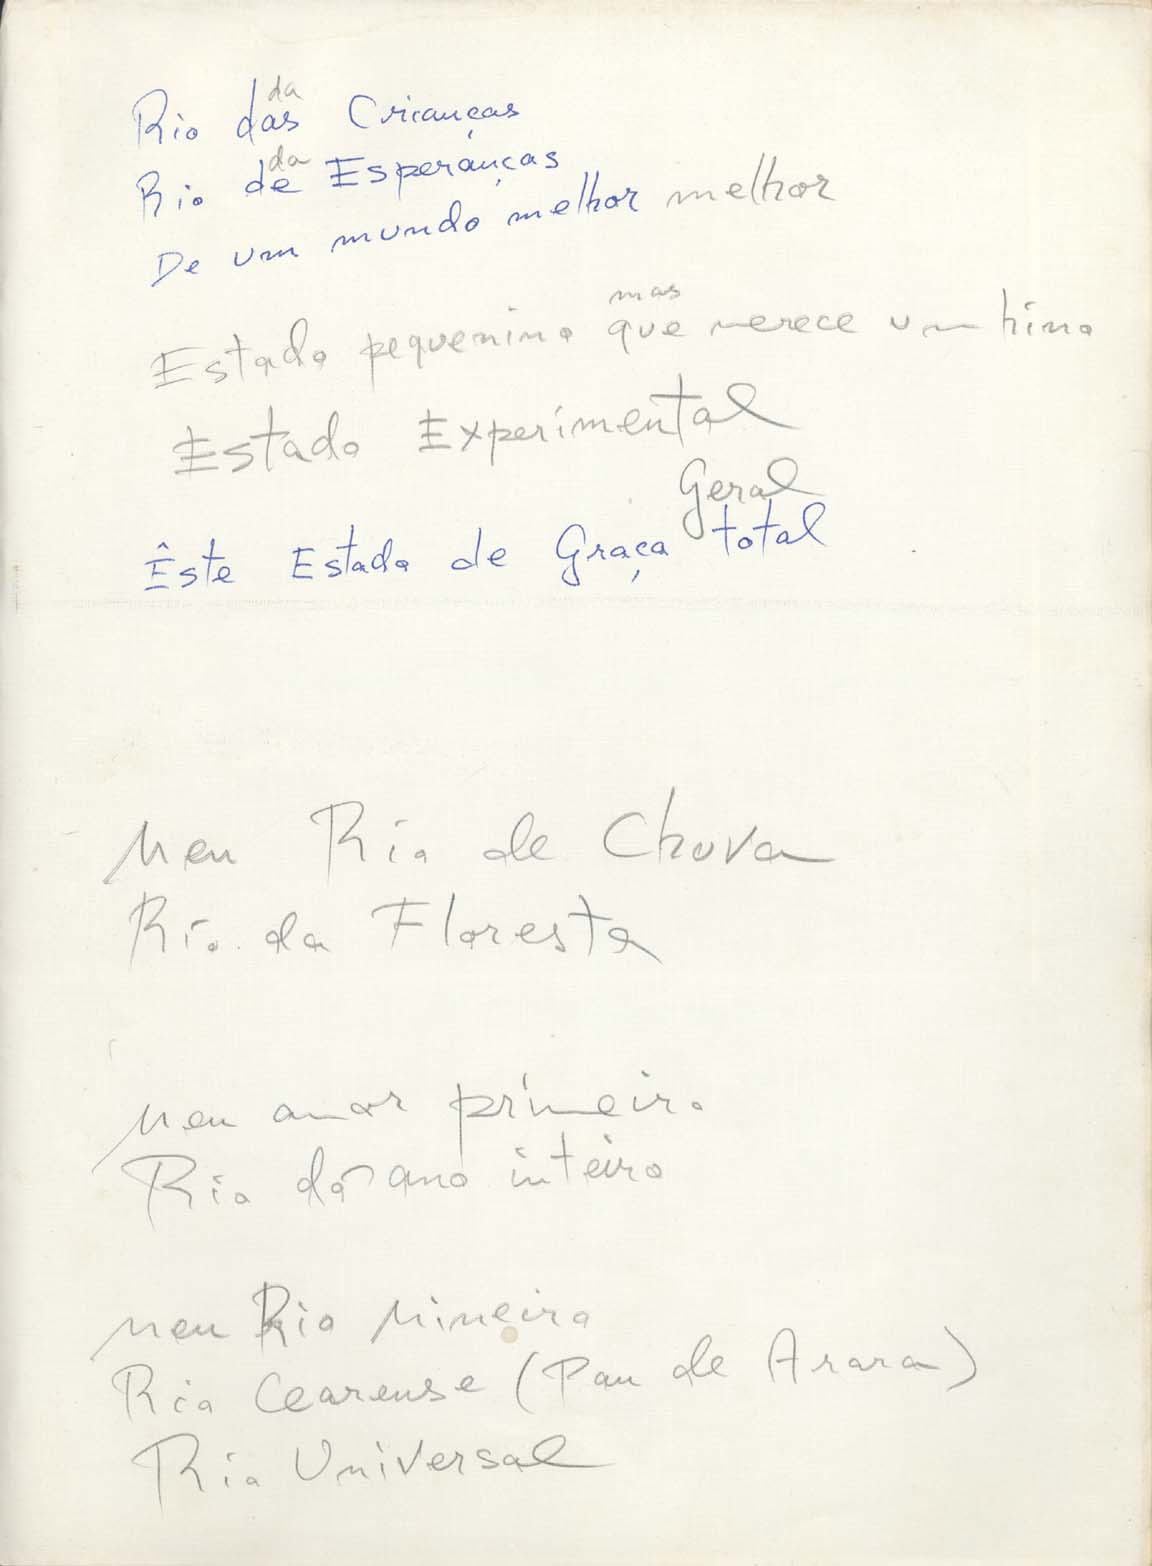 da
Rio das Crianças
da
Rio de Esperanças
De um mundo melhor melhor
mas
Estado pequenino que merece um hino
Estado Experimental
Geral
Êste Estado de Graça total
Meu Rio de Chuva
Rio da Floresta
Meu amor primeiro
Rio do ano inteiro
Meu Rio Mineiro
Rio Cearense (Pau de Arara)
Rio Universal